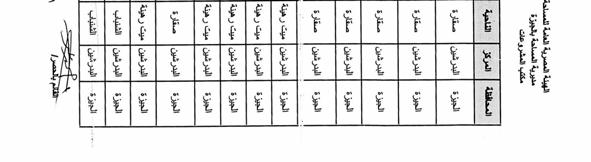 الهيئة المصرية العامة للمساحة
مديرية المساحة بالجيزة
مكتب المشروعات
المحافظة المركز الناحية
الجيزة البدرشين صقارة
الجيزة البدرشين صقارة
الجيزة البدرشين صقارة
الجيزة البدرشين صقارة
الجيزة البدرشين صقارة
الجيزة البدرشين ميت رهينة
الجيزة البدرشين ميت رهينة
الجيزة البدرشين ميت رهينة
الجيزة البدرشين ميت رهينة
الجيزة البدرشين صقارة
الجيزة البدرشين ميت رهينة
الجيزة البدرشين الشنباب
الجيزة البدرشين الشنباب